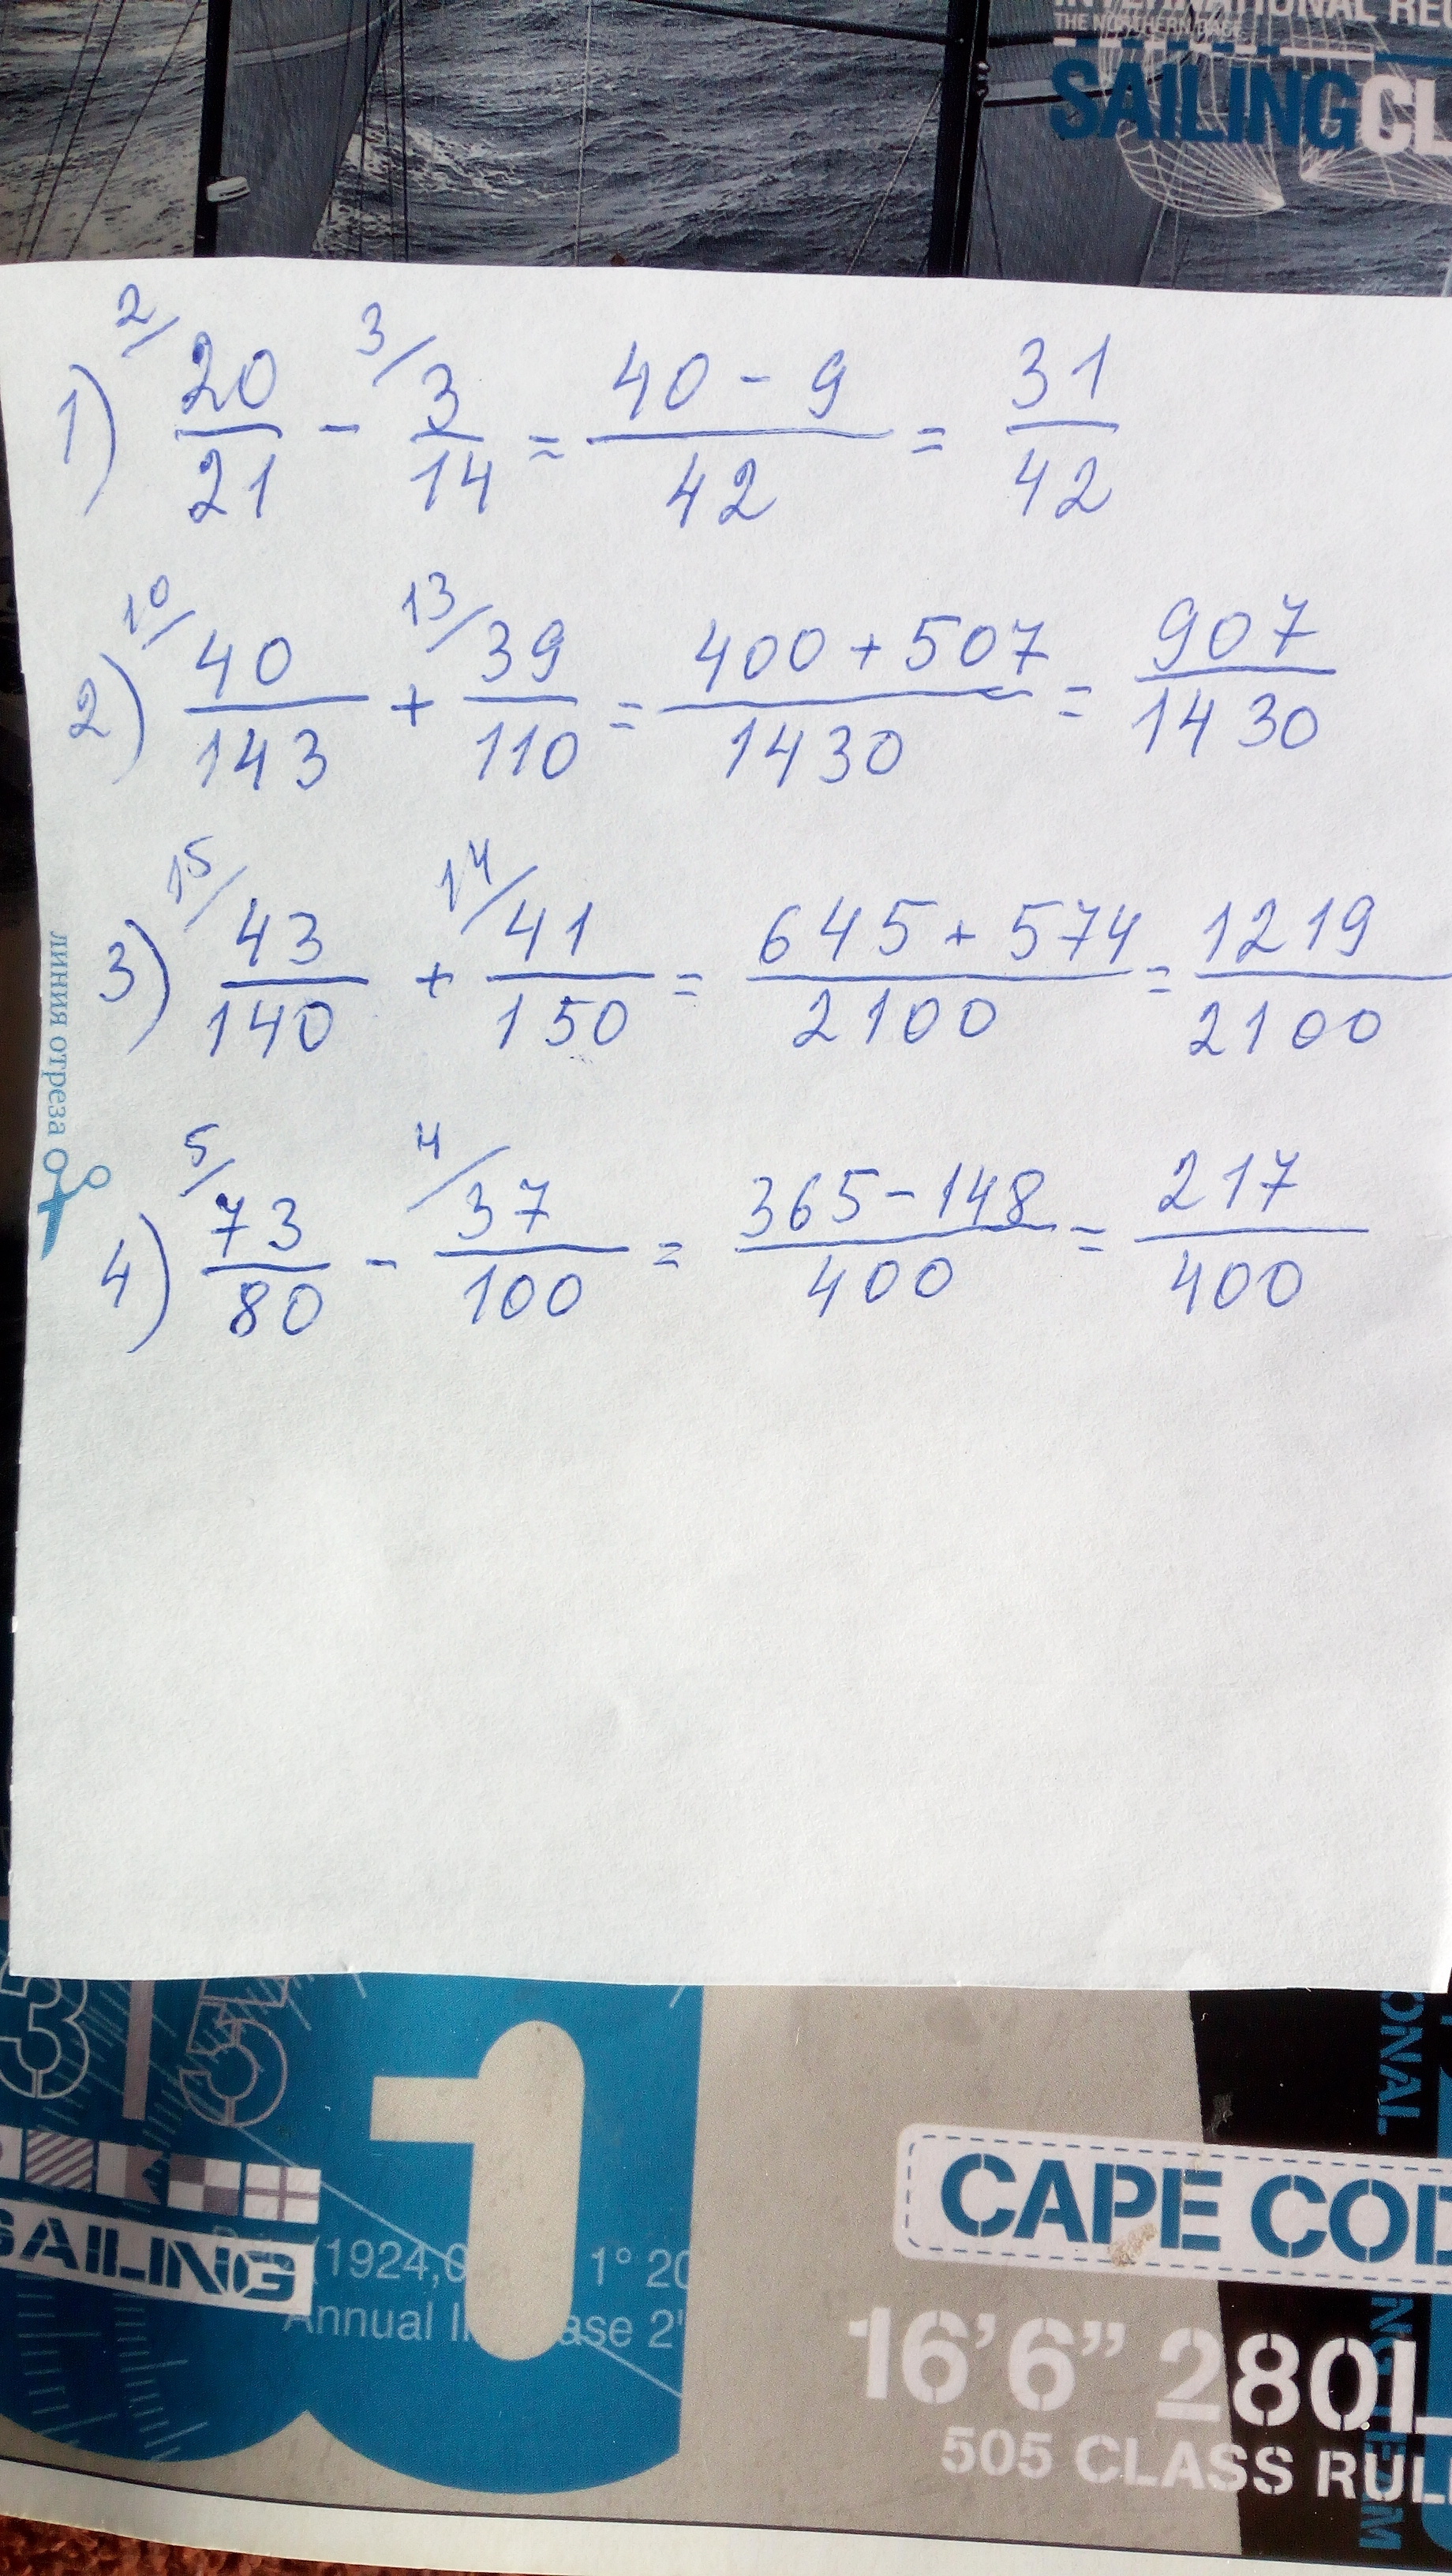 INTERNATIONAL RE
THE NORTHERN RACE
SAILINGCL
1) 2/ 20/21 - 3/ 3/14 = 40-9/42 = 31/42
2) 10/ 40/143 + 13/ 39/110 = 400+507/1430 = 907/1430
3) 15/ 43/140 + 14/ 41/150 = 645+574/2100 = 1219/2100
4) 5/ 73/80 - 4/ 37/100 = 365-148/400 = 217/400
линия отреза
315
1
SAILING
(1924,0
1° 20
Annual In ase 2'
ONAL
CAPE COD
16'6" 280L
505 CLASS RUL